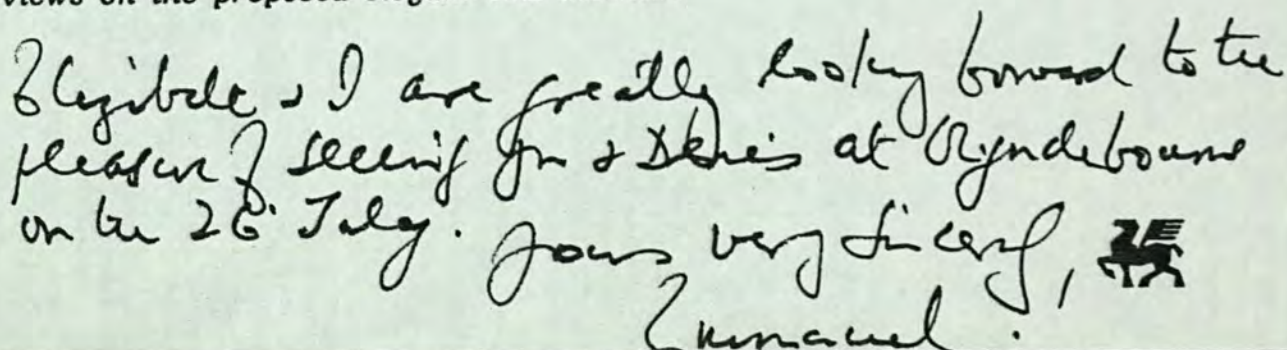 views on the proposed
Elizabeth & I are greatly looking forward to the
pleasure of seeing you & Denis at Glyndebourne
on the 26 July. Yours very sincerely,
Emmanuel.